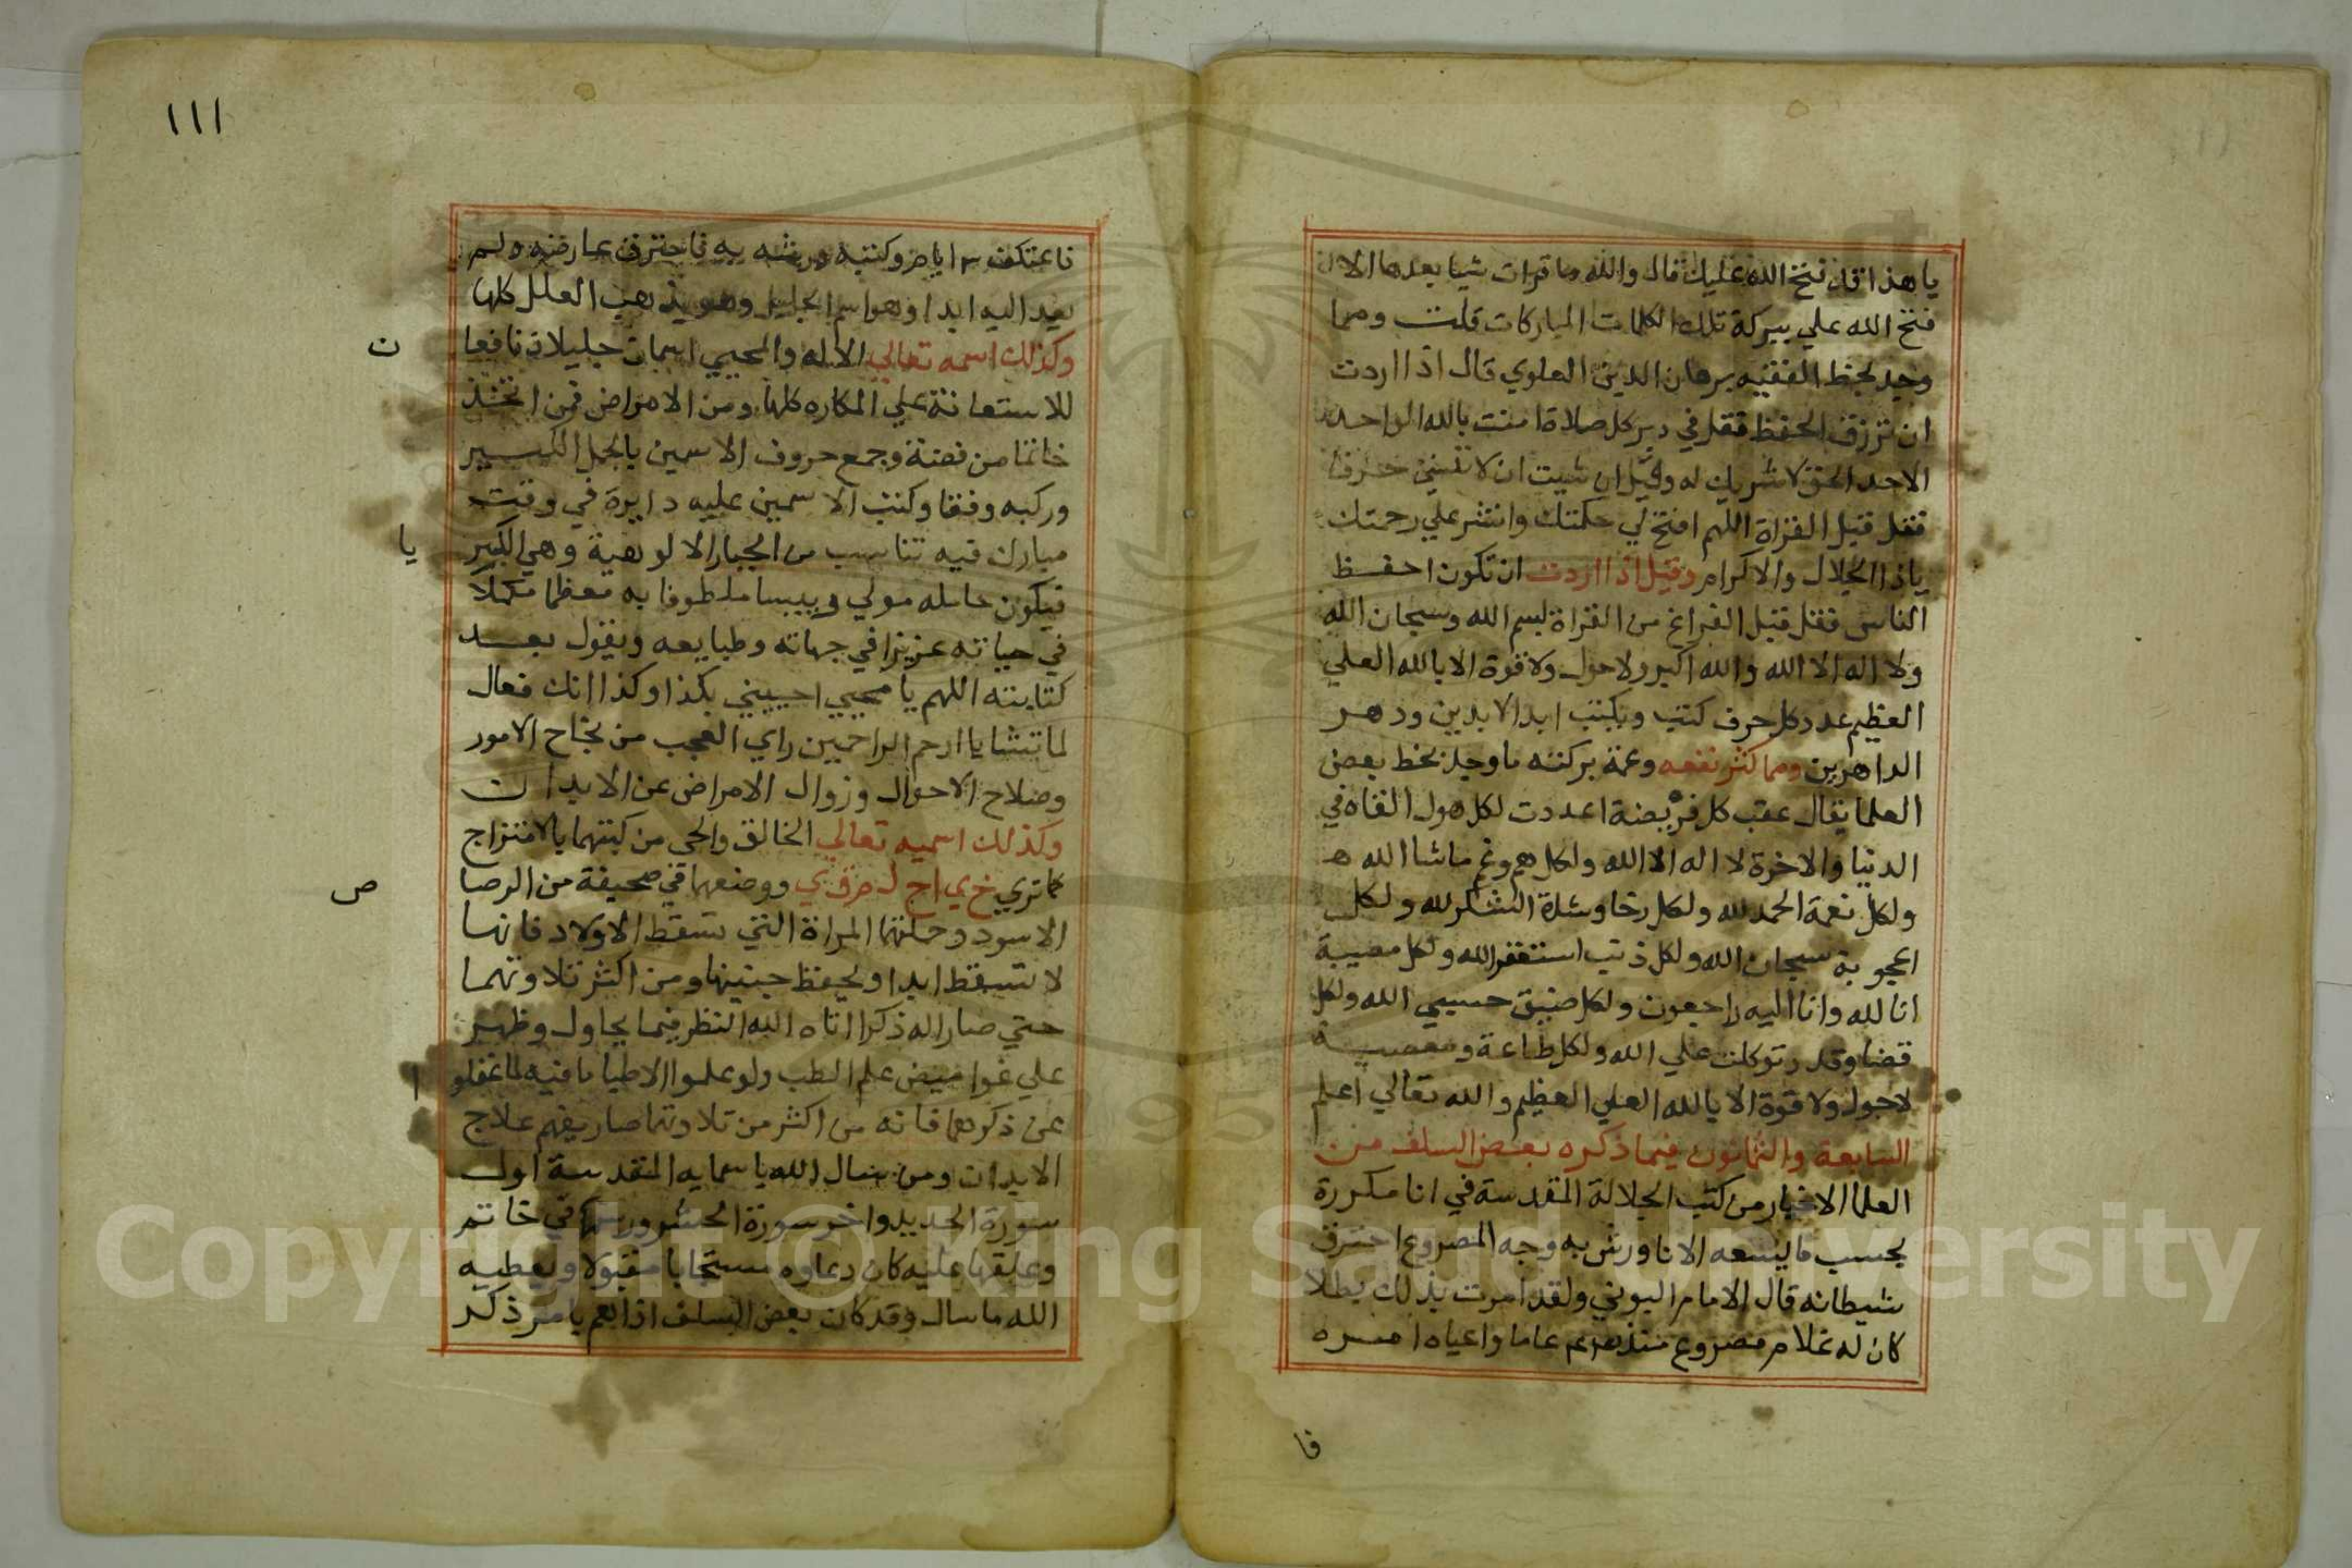 يا هذا قد فتح الله عليك قال والله ما قرات شيا بعدها الا
فتح الله علي ببركة تلك الكلمات المباركات قلت ومما
وجد بخط الفقيه برهان الدين العلوي قال اذا اردت
ان ترزق الحفظ فقل في دبر كل صلاة امنت بالله الواحد
الاحد الحق لا شريك له وقيل ان شيت ان لا تنسي حرفا
فقل قبل القراة اللهم افتح لي حكمتك وانشر علي رحمتك
ياذا الجلال والاكرام وقيل اذا اردت ان تكون احفظ
الناس فقل قبل الفراغ من القراة بسم الله وسبحان الله
ولا اله الا الله والله اكبر ولا حول ولا قوة الا بالله العلي
العظيم عدد كل حرف كتب ويكتب ابد الابدين ودهر
الداهرين ومما كثر نفعه وعمة بركته ما وجد بخط بعض
العلما يقال عقب كل فريضة اعددت لكل هول القاه في
الدنيا والاخرة لا اله الا الله ولكل هم وغم ماشا الله
ولكل نعمة الحمد لله ولكل رخا وشدة الشكر لله ولكل
اعجوبة سبحان الله ولكل ذنب استغفر الله ولكل مصيبة
انا لله وانا اليه راجعون ولكل ضيق حسبي الله ولكل
قضا وقدر توكلت علي الله ولكل طاعة ومعصية
لا حول ولا قوة الا بالله العلي العظيم والله تعالي اعلم
السابعة والثمانون فيما ذكره بعض السلف من
العلما الاخيار من كتب الجلالة المقدسة في انا مكررة
بحسب ما يسعه الانا ورش به وجه المصروع احترق
شيطانه قال الامام البوني ولقد امرت بذلك بطلا
كان له غلام مصروع منذ عاما واعياه امره
فا
١١١
فاعتكف ٣ ايام وكتبه ورشه به فاحترق عارضه ولم
يعد اليه ابدا وهو اسم الجليل وهو يذهب العلل كلها
وكذلك اسمه تعالي الاله والمحيي اسمان جليلان نافعا
ن
للاستعانة علي المكاره كلها ومن الامراض فمن اتخذ
خاتما من فضة وجمع حروف الاسمين بالجمل الكبير
وركبه وفقا وكتب الاسمين عليه دايرة في وقت
مبارك فيه تناسب من الجبار الالوهية وهي الكبير
يا
فيكون حامله ملطوفا به معظما مكملا
في حياته عزيزا في جهاته وطبايعه ويقول بعد
كتابته اللهم يا محيي احييني بكذا وكذا انك فعال
لما تشا يا ارحم الراحمين راي العجب من نجاح الامور
وصلاح الاحوال وزوال الامراض عن الابدان
وكذلك اسميه تعالي الخالق والحي من كتبهما بالامتزاج
كما تري خ ي ا ح ل ووضعهما في صحيفة من الرصا
ص
الاسود وحملتهما المراة التي تسقط الاولاد فانها
لا تسقط ابدا ويحفظ جنينها ومن اكثر تلاوتهما
حتي صارا له ذكرا اتاه الله النظر فيما يحاول وظهر
علي غوامض علم الطب ولو علموا الاطبا ما فيه لما غفلو
ا
عن ذكرهما فانه من اكثر من تلاوتهما صار يفهم علاج
الابدان ومن سال الله باسمايه المقدسة اول
سورة الحديد واخر سورة الحشر ورسمها في خاتم
وعلقها عليه كان دعاوه مستجابا مقبولا ويعطيه
الله ما سال وقد كان بعض السلف اذا يامر ذكر
Copyright © King Saud University
195